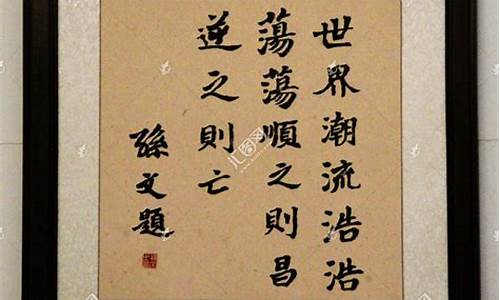 世界潮流浩浩
蕩蕩順之則昌
逆之則亡
孫文題
汇图网